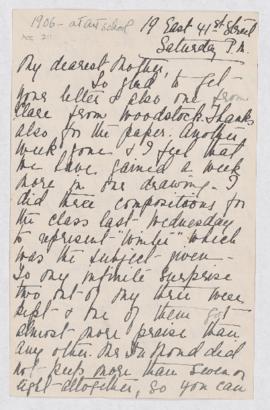 1906 - at art school
19 East 41st Street
Saturday P.M.
My dearest Mother,
So glad to get
your letter & also one from
Clare from Woodstock. Thanks
also for the paper. Another
week gone & I feel that
we have gained a week
more in our drawing. I
did three compositions for
the class last Wednesday
to represent "Winter" which
was the subject given.
To my infinite surprise
two out of my three were
kept & one of them got
almost more praise than
any other. Mr. Du Mond did
not keep more than seven or
eight altogether, so you can